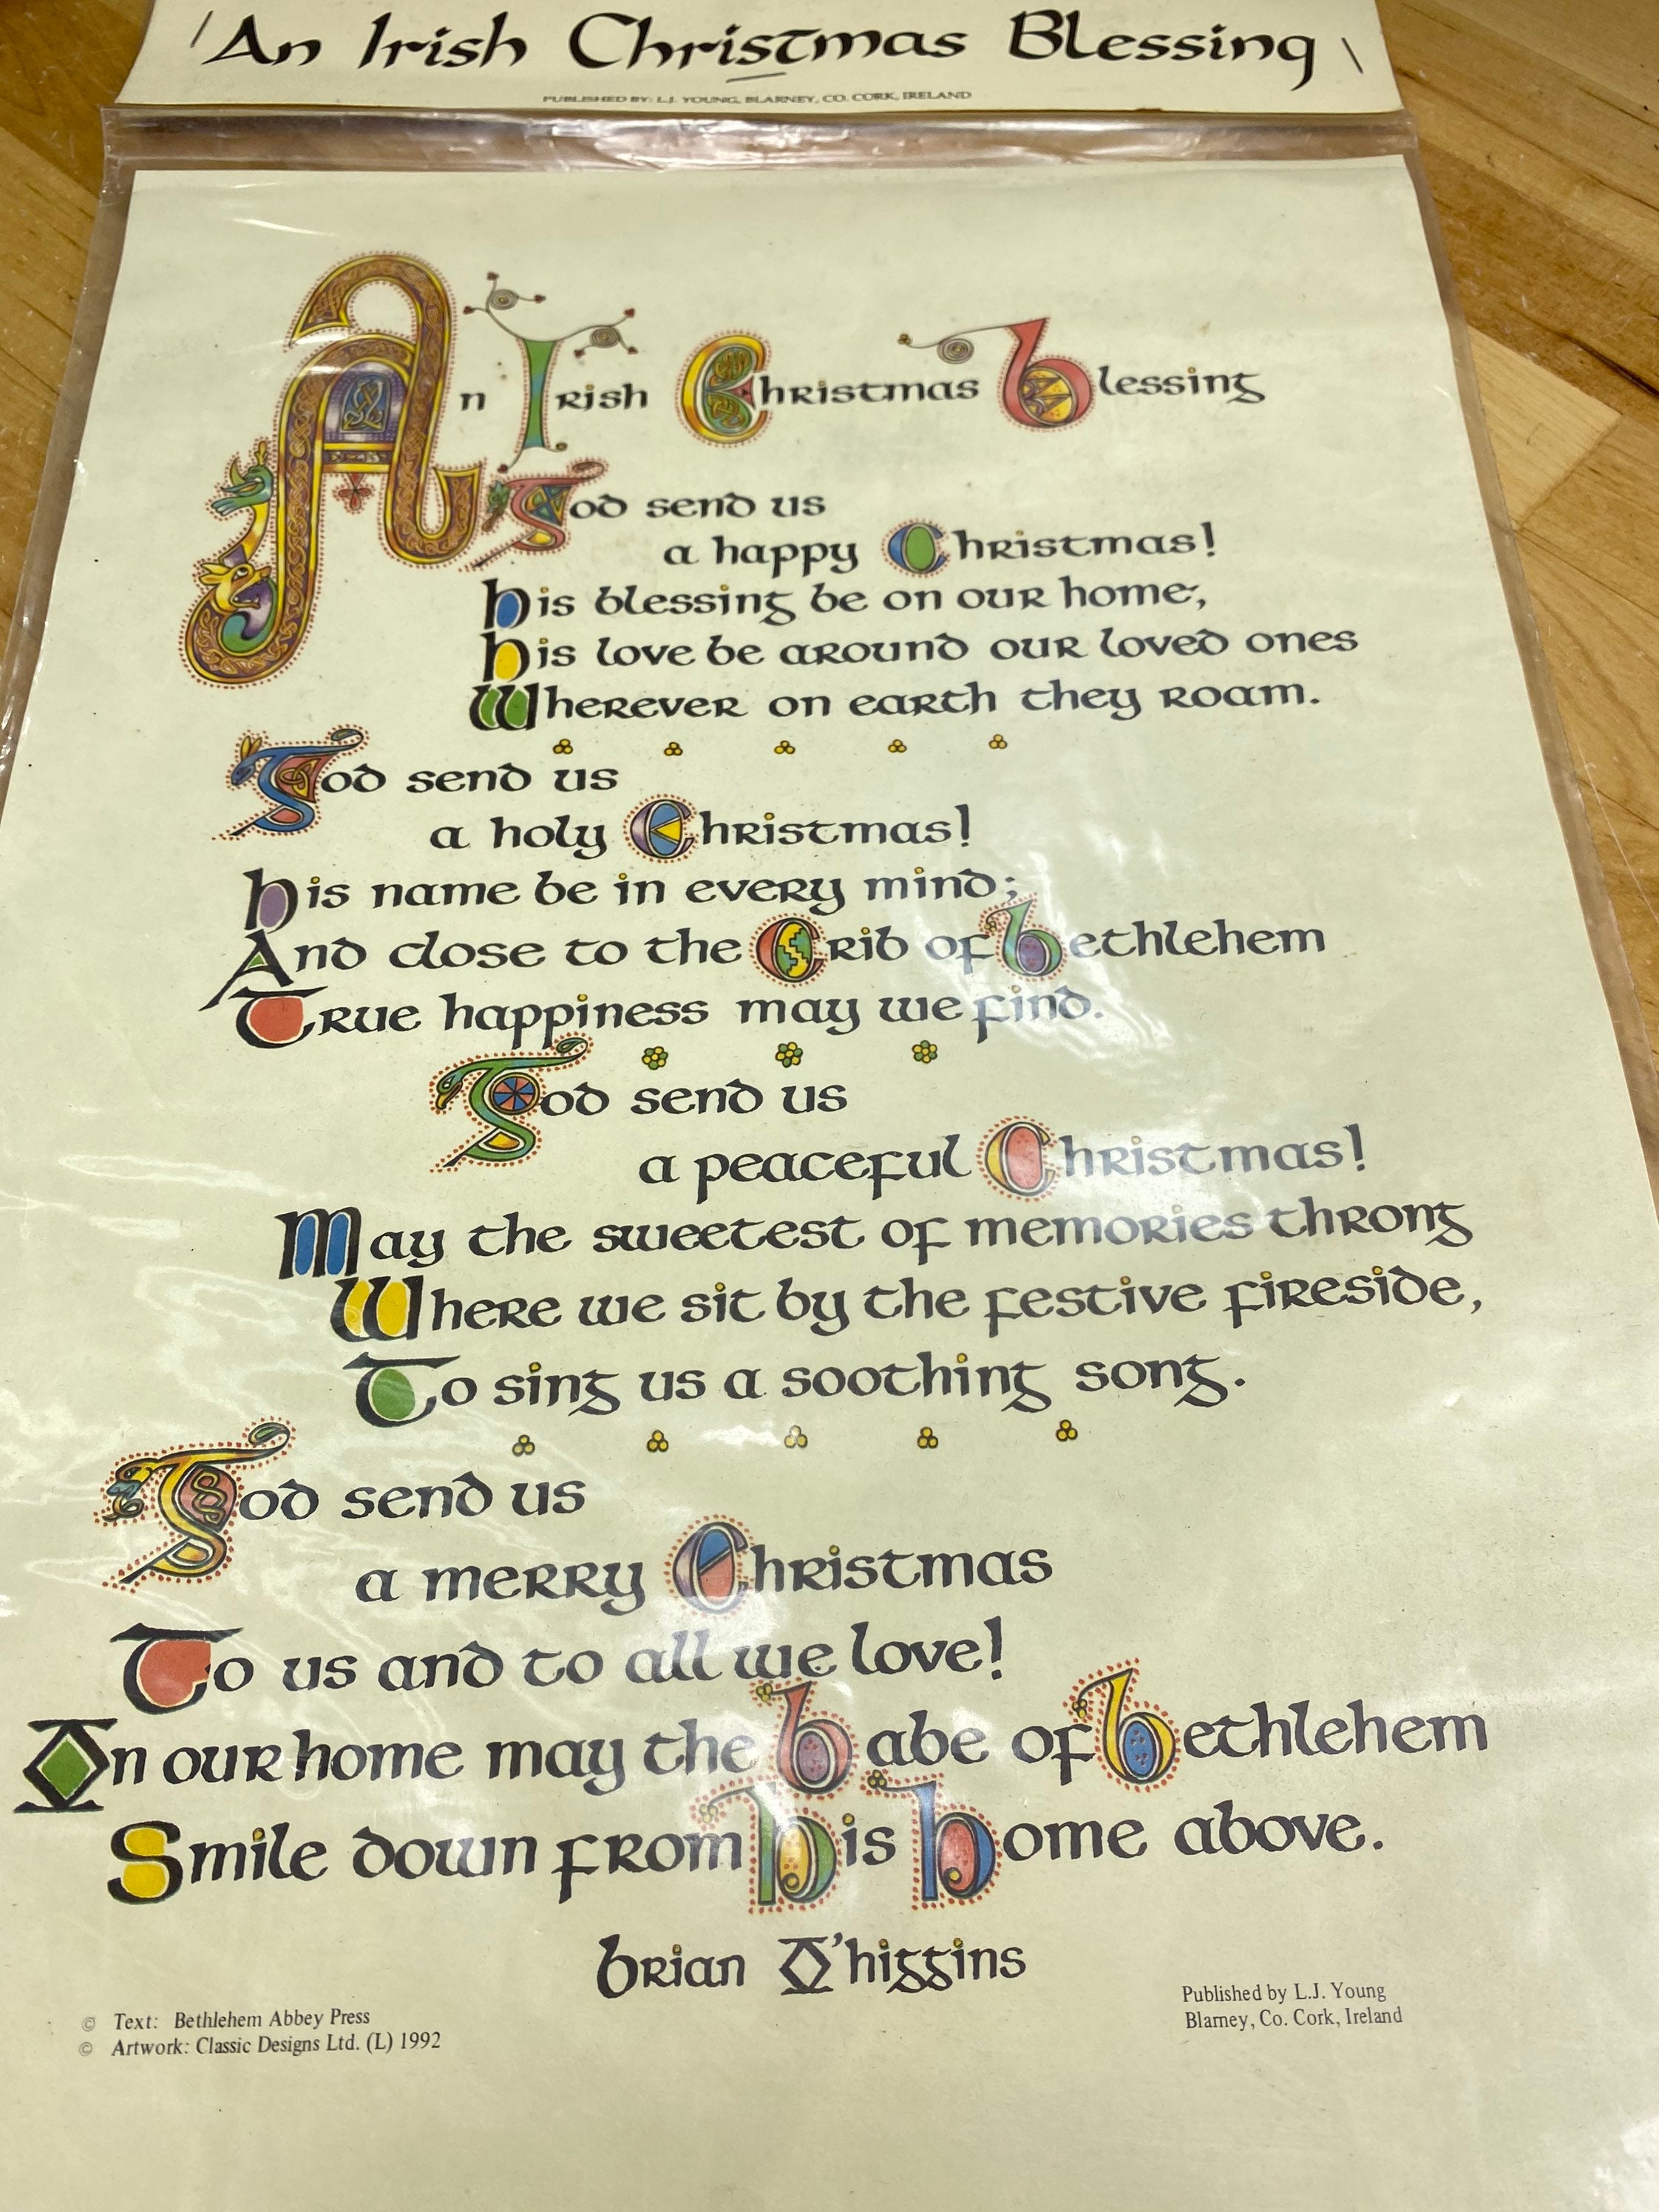 An Irish Christmas Blessing
PUBLISHED BY: L.J. YOUNG, BLARNEY, CO. CORK, IRELAND
An Irish Christmas Blessing
God send us
a happy Christmas!
His blessing be on our home,
His love be around our loved ones
Wherever on earth they roam.
God send us
a holy Christmas!
His name be in every mind;
And close to the Crib of Bethlehem
True happiness may we find.
God send us
a peaceful Christmas!
May the sweetest of memories throng
Where we sit by the festive fireside,
To sing us a soothing song.
God send us
a merry Christmas
To us and to all we love!
In our home may the Babe of Bethlehem
Smile down from His Home above.
Brian O'Higgins
© Text: Bethlehem Abbey Press
© Artwork: Classic Designs Ltd. (L) 1992
Published by L.J. Young
Blarney, Co. Cork, Ireland